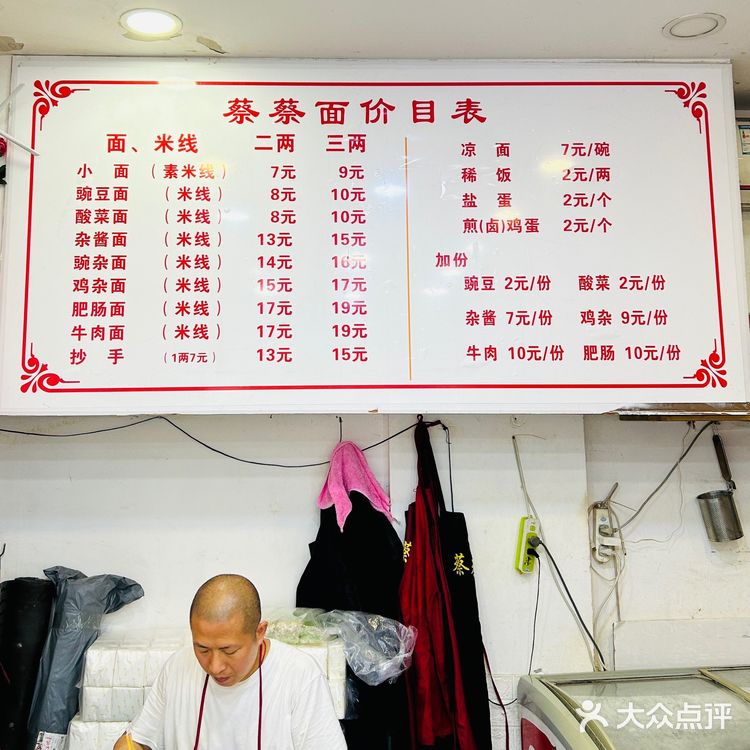 蔡蔡面价目表
面、米线 二两 三两
小 面 (素米线) 7元 9元
豌豆面 (米线) 8元 10元
酸菜面 (米线) 8元 10元
杂酱面 (米线) 13元 15元
豌杂面 (米线) 14元 16元
鸡杂面 (米线) 15元 17元
肥肠面 (米线) 17元 19元
牛肉面 (米线) 17元 19元
抄 手 (1两7元) 13元 15元
凉 面 7元/碗
稀 饭 2元/两
盐 蛋 2元/个
煎(卤)鸡蛋 2元/个
加份
豌豆 2元/份 酸菜 2元/份
杂酱 7元/份 鸡杂 9元/份
牛肉 10元/份 肥肠 10元/份
蔡
大众点评